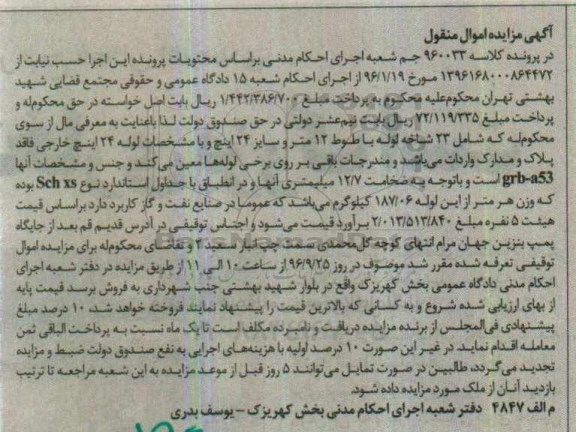 آگهی مزایده اموال منقول
در پرونده کلاسه ۹۶۰۰۳۳ جم شعبه اجرای احکام مدنی براساس محتویات پرونده این اجرا حسب نیابت از
۱۳۹۶۱۶۸۰۰۰۸۶۴۴۷۲ مورخ ۹۶/۱/۱۹ از اجرای احکام شعبه ۱۵ دادگاه عمومی و حقوقی مجتمع قضایی شهید
بهشتی تهران محکوم‌علیه محکوم به پرداخت مبلغ ۱/۴۴۲/۳۸۶/۷۰۰ ریال بابت اصل خواسته در حق محکوم‌له و
پرداخت مبلغ ۷۲/۱۱۹/۳۳۵ ریال بابت نیم‌عشر دولتی در حق صندوق دولت لذا باعنایت به معرفی مال از سوی
محکوم‌له که شامل ۲۳ شاخه لوله با طوط ۱۲ متر و سایز ۲۴ اینچ و با مشخصات لوله ۲۴ اینچ خارجی فاقد
پلاک و مدارک واردات می‌باشد و مندرجات باقی بر روی برخی لوله‌ها معین می‌کند و جنس و مشخصات آنها
grb-a53 است و باتوجه به ضخامت ۱۲/۷ میلیمتری آنها و در انطباق با جداول استاندارد نوع Sch xs بوده
که وزن هر متر از این لوله ۱۸۷/۰۶ کیلوگرم می‌باشد که عموما در صنایع نفت و گاز کاربرد دارد براساس قیمت
هیئت ۵ نفره مبلغ ۲/۰۱۳/۵۱۳/۸۴۰ برآورد قیمت می‌شود و اجناس توقیفی در آدرس قدیم قم بعد از جایگاه
پمپ بنزین جهان مرام انتهای کوچه گل‌محمدی سمت چپ انبار سعید ۲ و تقاضای محکوم‌له برای مزایده اموال
توقیفی تعرفه شده مقرر شد موصوف در روز ۹۶/۹/۲۵ از ساعت ۱۰ الی ۱۱ از طریق مزایده در دفتر شعبه اجرای
احکام مدنی دادگاه عمومی بخش کهریزک واقع در بلوار شهید بهشتی جنب شهرداری به فروش برسد قیمت پایه
از بهای ارزیابی شده شروع و به کسانی که بالاترین قیمت را پیشنهاد نمایند فروخته خواهد شد، ۱۰ درصد مبلغ
پیشنهادی فی‌المجلس از برنده مزایده دریافت و نامبرده مکلف است تا یک ماه نسبت به پرداخت الباقی ثمن
معامله اقدام نماید. در غیر این صورت ۱۰ درصد اولیه با هزینه‌های اجرایی به نفع صندوق دولت ضبط و مزایده
تجدید می‌گردد، طالبین در صورت تمایل می‌توانند ۵ روز قبل از موعد مزایده به این شعبه مراجعه تا ترتیب
بازدید آنان از ملک مورد مزایده داده شود.
م الف ۴۸۴۷ دفتر شعبه اجرای احکام مدنی بخش کهریزک – یوسف بدری